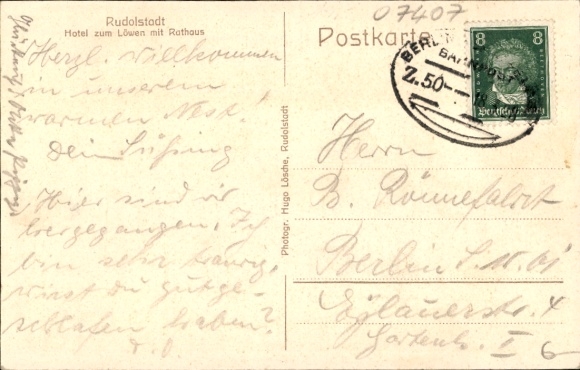 07407
Rudolstadt
Hotel zum Löwen mit Rathaus
Postkarte
8 8
Deutsches Reich
BERL
BAHNPOST
Z.50
Herzl. Willkommen
in unserem
warmen Nest!
Dein
Hier sind wir
Ich
bin sehr traurig,
wirst du gut ge-
schlafen haben?
Photogr. Hugo Lösche, Rudolstadt
Herrn
B. Rönnefahrt
Berlin S.W. 61
Eylauerstr. 4
Gartenh. I
6